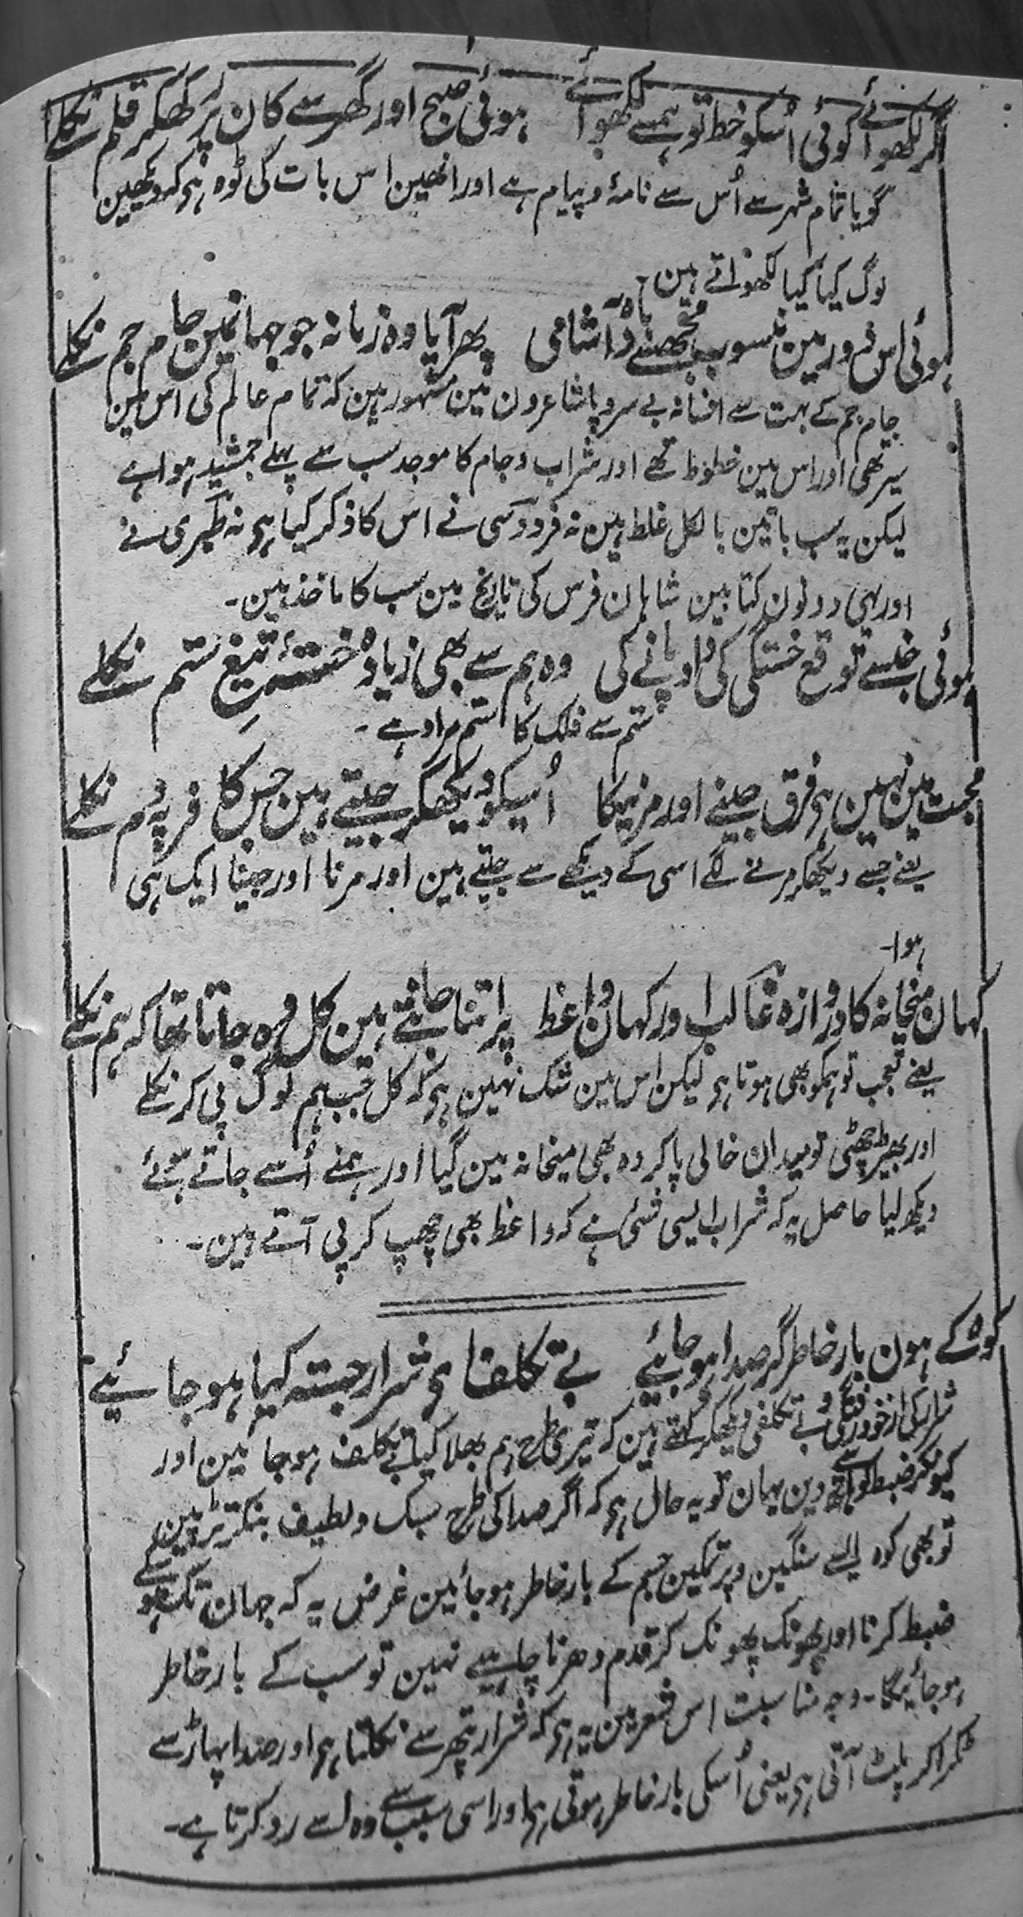 اگر لکھوائے کوئی اُسکو خط تو ہمسے لکھوائے ہوئی صبح اور گھر سے کان پر رکھکر قلم نکلے
گویا تمام شہر سے اُس سے نامۂ و پیام ہے اور انھین اس بات کی ٹوہ ہی کہ دیکھین
لوگ کیا کیا لکھواتے ہین۔
ہوئی اس دور مین منسوب مجھسے بادہ آشامی پھر آیا وہ زمانہ جو جہانمین جام جم نکلے
جام جم کے بہت سے افسانۂ بے سروپا شاعرون مین مشہور ہین کہ تمام عالم کی اس مین
سیر تھی اور اس مین خطوط تھے اور شراب و جام کا موجد سب سے پہلے جمشید ہوا ہے
لیکن یہ سب باتین بالکل غلط ہین نہ فردوسی نے اس کا ذکر کیا ہی نہ طبری نے
اور یہی دونون کتابین شاہان فرس کی تاریخ مین سب کا ماخذ ہین۔
ہوئی جنسے توقع خستگی کی داد پانے کی وہ ہم سے بھی زیادہ خستۂ تیغِ ستم نکلے
ستم سے فلک کا ستم مراد ہے۔
محبت مین نہین ہی فرق جینے اور مرنیکا اُسیکو دیکھکر جیتے ہین جس کا فر پہ دم نکلے
یعنے جسے دیکھکر مرنے لگے اسی کے دیکھے سے جیتے ہین اور مرنا اور جینا ایک ہی
ہوا۔
کہان میخانہ کا دروازہ غالب اور کہان واعظ پر اتنا جانتے ہین کل وہ جاتا تھا کہ ہم نکلے
یعنے تعجب تو ہمکو بھی ہوتا ہی لیکن اس مین شک نہین ہی کہ کل جب ہم لوگ پی کر نکلے
اور بھیڑ چھٹی تو میدان خالی پاکر وہ بھی میخانہ مین گیا اور ہمنے اُسے جاتے ہوئے
دیکھ لیا حاصل یہ کہ شراب ایسی شئی ہے کہ واعظ بھی چھپ کر پی آتے ہین۔
کوہ کے ہون بار خاطر گر صدا ہو جائیے بے تکلف ای شرار جستہ کیا ہو جائیے
شرار کی از خود رفتگی و بے تکلفی دیکھکر کہتے ہین کہ تیری طرح ہم بھلا کیا بے تکلف ہو جائین اور
کیونکر ضبط کو ہاتھ سے دین یہان تو یہ حال ہی کہ اگر صدا کی طرح سبک و لطیف بنکر تڑپین
تو بھی کوہ ایسے سنگین و پر تمکین جسم کے بار خاطر ہو جائین غرض یہ کہ جہان تک ہو سکے
ضبط کرنا اور پھونک پھونک کر قدم دھرنا چاہیے نہین تو سب کے بار خاطر
ہو جائیگا۔ وجہ مناسبت اس شعر مین یہ ہی کہ شرار پتھر سے نکلتا ہی اور صدا پہاڑ سے
ٹکرا کر پلٹ آتی ہی یعنی اُسکی بار خاطر ہوتی ہی اور اسی سبب سے وہ اسے رد کرتا ہے۔